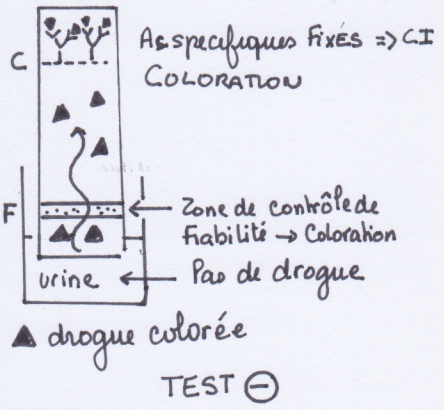 Ac specifiques Fixés => CI
C
COLORATION
F
Zone de contrôle de
Fiabilité → Coloration
urine
Pas de drogue
▲ drogue colorée
TEST ⊖